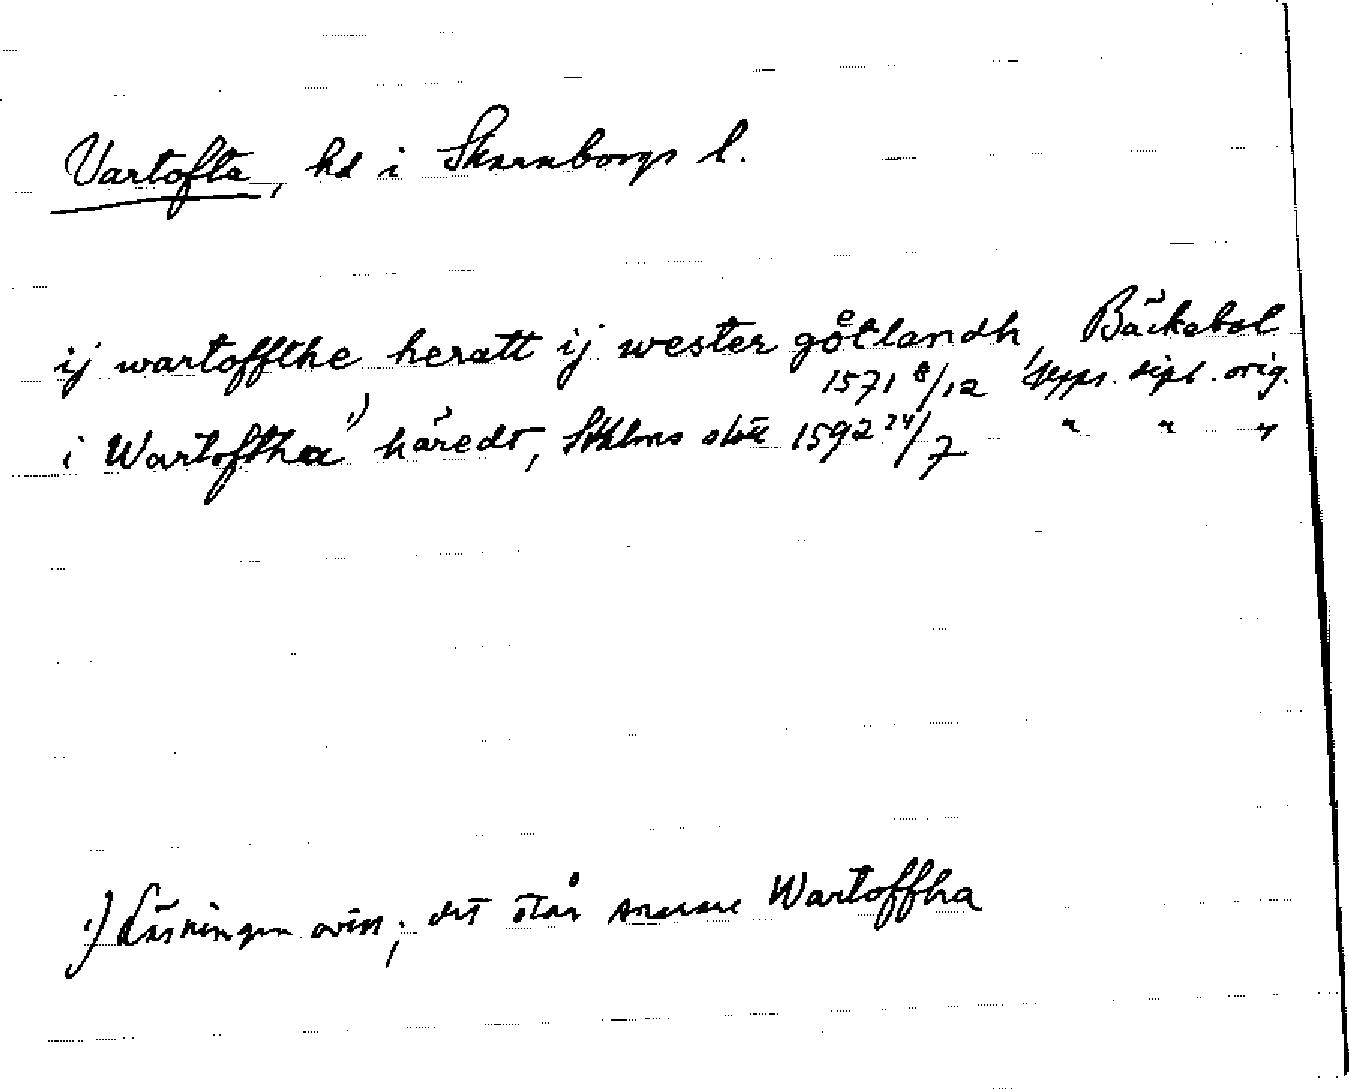 Vartofta, hd i Skaraborgs l.
ij wartoffthe heratt ij wester gøͤtlandh, Bäckabol
1571 8/12 Upps. dipl. orig.
i Wartofftha 1) häredt, Sthlms slott 1592 24/7 " " "
1) Läsningen oviss; det står snarare Wartoffha